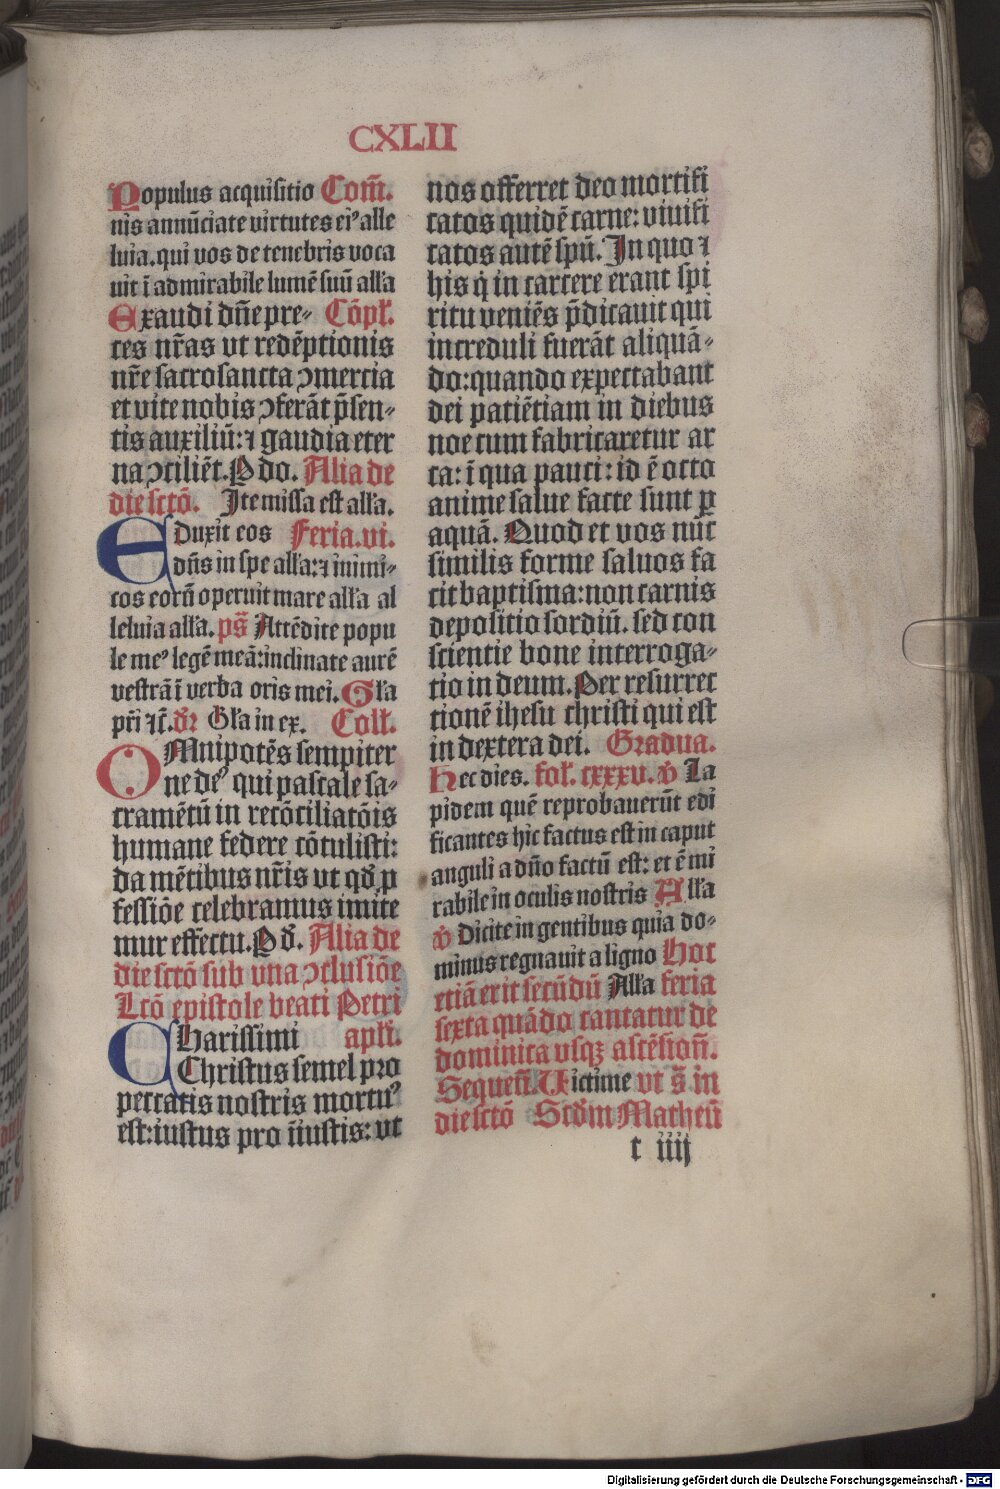 CXLII
Populus acquisitio Com̄.
nis annūciate virtutes eiꝰ alle
luia. qui vos de tenebris voca
uit ī admirabile lumē suū alľa
Exaudi dn̄e pre⸗ Cōpľ.
ces nr̄as vt redēptionis
nr̄e sacrosancta ↄmercia
et vite nobis ↄferāt p̄sen⸗
tis auxiliū: ⁊ gaudia eter
na ↄciliēt. P do. Alia de
die sctō. Ite missa est alľa.
Eduxit eos Feria. vi.
dn̄s in spe alľa: ⁊ inimi⸗
cos eorū operuit mare alľa al
leluia alľa. ps̄ Attēdite popu
le meꝰ legē meā: inclinate aurē
vestrā ī verba oris mei. Gľa
pr̄i ⁊c̄. dr̄ Gľa in ex. Coll.
OMnipotēs sempiter
ne deꝰ qui pascale sa⸗
cramētū in recōciliatōis
humane federe cōtulisti:
da mētibus nr̄is vt qđ ꝓ
fessiōe celebramus imite
mur effectu. P đ. Alia de
die sctō sub vna ↄclusiōe
Lc̄o epistole beati Petri
CHarissimi apľi.
Christus semel pro
peccatis nostris mortuꝰ
est: iustus pro iīustis: vt
nos offerret deo mortifi
catos quidē carne: viuifi
catos autē spū. In quo ⁊
his q̇ in carcere erant spi
ritu veniēs p̄dicauit qui
increduli fuerāt aliquā⸗
do: quando expectabant
dei patiētiam in diebus
noe cum fabricaretur ar
ca: ī qua pauci: id ē octo
anime salue facte sunt ꝑ
aquā. Quod et vos nūc
similis forme saluos fa
cit baptisma: non carnis
depositio sordiū. sed con
scientie bone interroga⸗
tio in deum. Per resurrec
tionē ihesu christi qui est
in dextera dei. Gradua.
Hec dies. foľ. cxxxv. ꝟ La
pidem quē reprobauerūt edi
ficantes hic factus est in caput
anguli a dn̄o factū est: et ē mi
rabile in oculis nostris Alľa
ꝟ Dicite in gentibus quia do⸗
minus regnauit a ligno Hoc
etiā erit secūdū Alľa feria
sexta quādo cantatur de
dominica vsqꝫ ascēsion̄.
Sequen̄. Uictime vt s̄ in
die sctō Scđm Matheū
t iiij
Digitalisierung gefördert durch die Deutsche Forschungsgemeinschaft - DFG